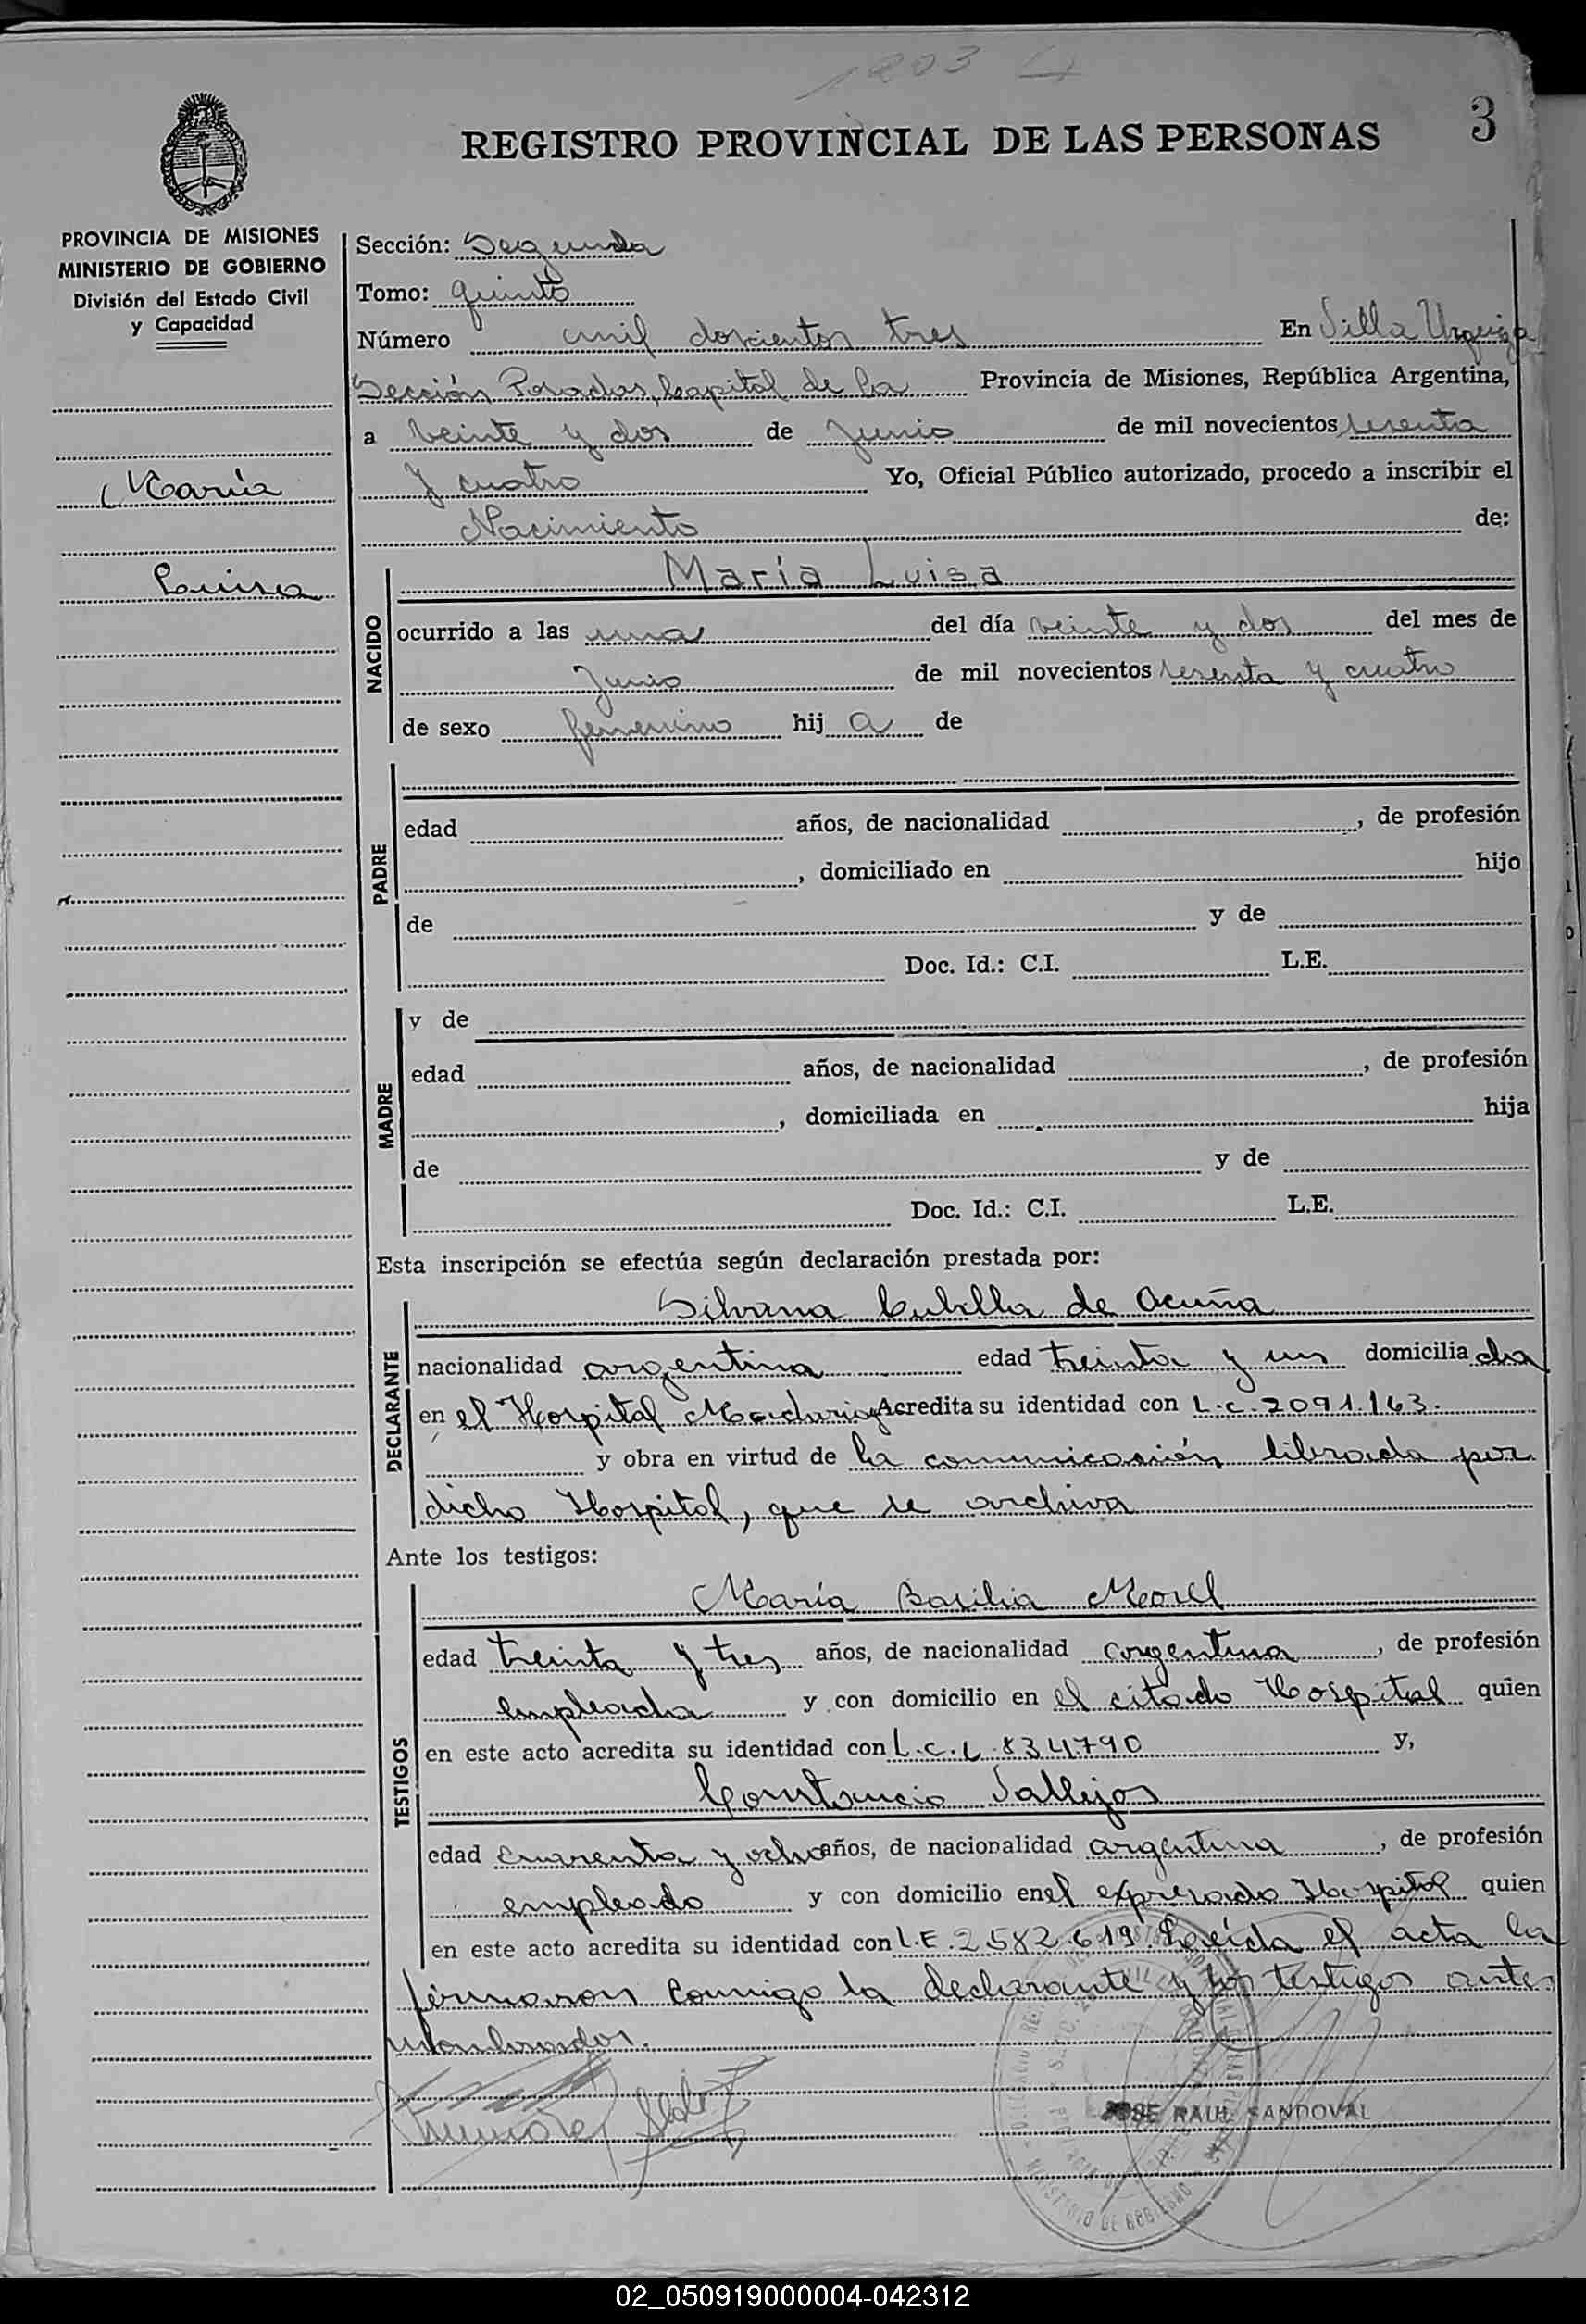 1203
3
REGISTRO PROVINCIAL DE LAS PERSONAS
PROVINCIA DE MISIONES
MINISTERIO DE GOBIERNO
División del Estado Civil
y Capacidad
María
Luisa
Sección: Segunda
Tomo: quinto
Número mil doscientos tres En Villa Urquiza
Sección Posadas, Capital de la Provincia de Misiones, República Argentina,
a veinte y dos de Junio de mil novecientos sesenta
y cuatro Yo, Oficial Público autorizado, procedo a inscribir el
Nacimiento de:
NACIDO
María Luisa
ocurrido a las una del día veinte y dos del mes de
Junio de mil novecientos sesenta y cuatro
de sexo femenino hij a de
PADRE
edad años, de nacionalidad , de profesión
, domiciliado en hijo
de y de
Doc. Id.: C.I. L.E.
MADRE
y de
edad años, de nacionalidad , de profesión
, domiciliada en hija
de y de
Doc. Id.: C.I. L.E.
Esta inscripción se efectúa según declaración prestada por:
DECLARANTE
Silvana Cubilla de Acuña
nacionalidad argentina edad treinta y un domicilia da
en el Hospital Madariaga Acredita su identidad con L.C. 2091.163.
y obra en virtud de la comunicación librada por
dicho Hospital, que se archiva
Ante los testigos:
TESTIGOS
María Basilia Morel
edad treinta y tres años, de nacionalidad argentina , de profesión
empleada y con domicilio en el citado Hospital quien
en este acto acredita su identidad con L.C. 834790 y,
Constancio Vallejos
edad cuarenta y ocho años, de nacionalidad argentina , de profesión
empleado y con domicilio en el expresado Hospital quien
en este acto acredita su identidad con L.E. 2582.619. Leída el acta la
firmaron conmigo la declarante y los testigos antes
nombrados.
JOSE RAUL SANDOVAL
MINISTERIO DE GOBIERNO
02_050919000004-042312